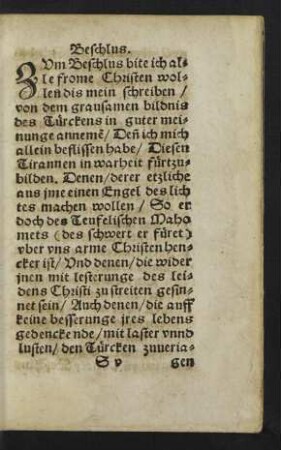 Beschlus.
ZVm Beschlus bite ich al⸗
le frome Christen wol⸗
len dis mein schreiben /
von dem grausamen bildnis
des Türckens in guter mei⸗
nunge annemē / Deñ ich mich
allein beflissen habe / Diesen
Tirannen in warheit fürtzu⸗
bilden. Denen / derer etzliche
aus jme einen Engel des lich
tes machen wollen / So er
doch des Teufelischen Maho
mets (des schwert er füret)
vber vns arme Christen hen⸗
cker ist / Vnd denen / die wider
jnen mit lesterunge des lei⸗
dens Christi zu streiten gesin⸗
net sein / Auch denen / die auff
keine besserunge jres lebens
gedencke nde / mit laster vnnd
lusten / den Türcken zuueria⸗
S v gen